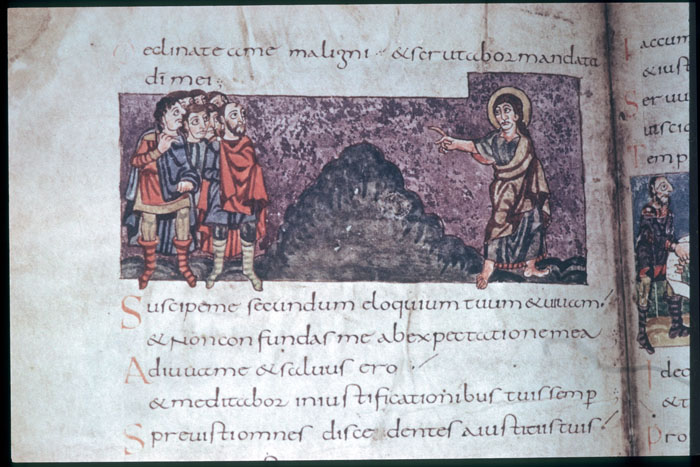 eclinate ame maligni · & scrutabor mandata
dī mei ·
Suscipeme secundum eloquium tuum & uiuam
& Non confundas me abexpectationemea
Adiuuame & saluus ero
& meditabor iniustificationibus tuis semp
Spreuistiomnes discedentes aiustitiistuis
accum
& iust
Seruu
Temp
Ideo
& t